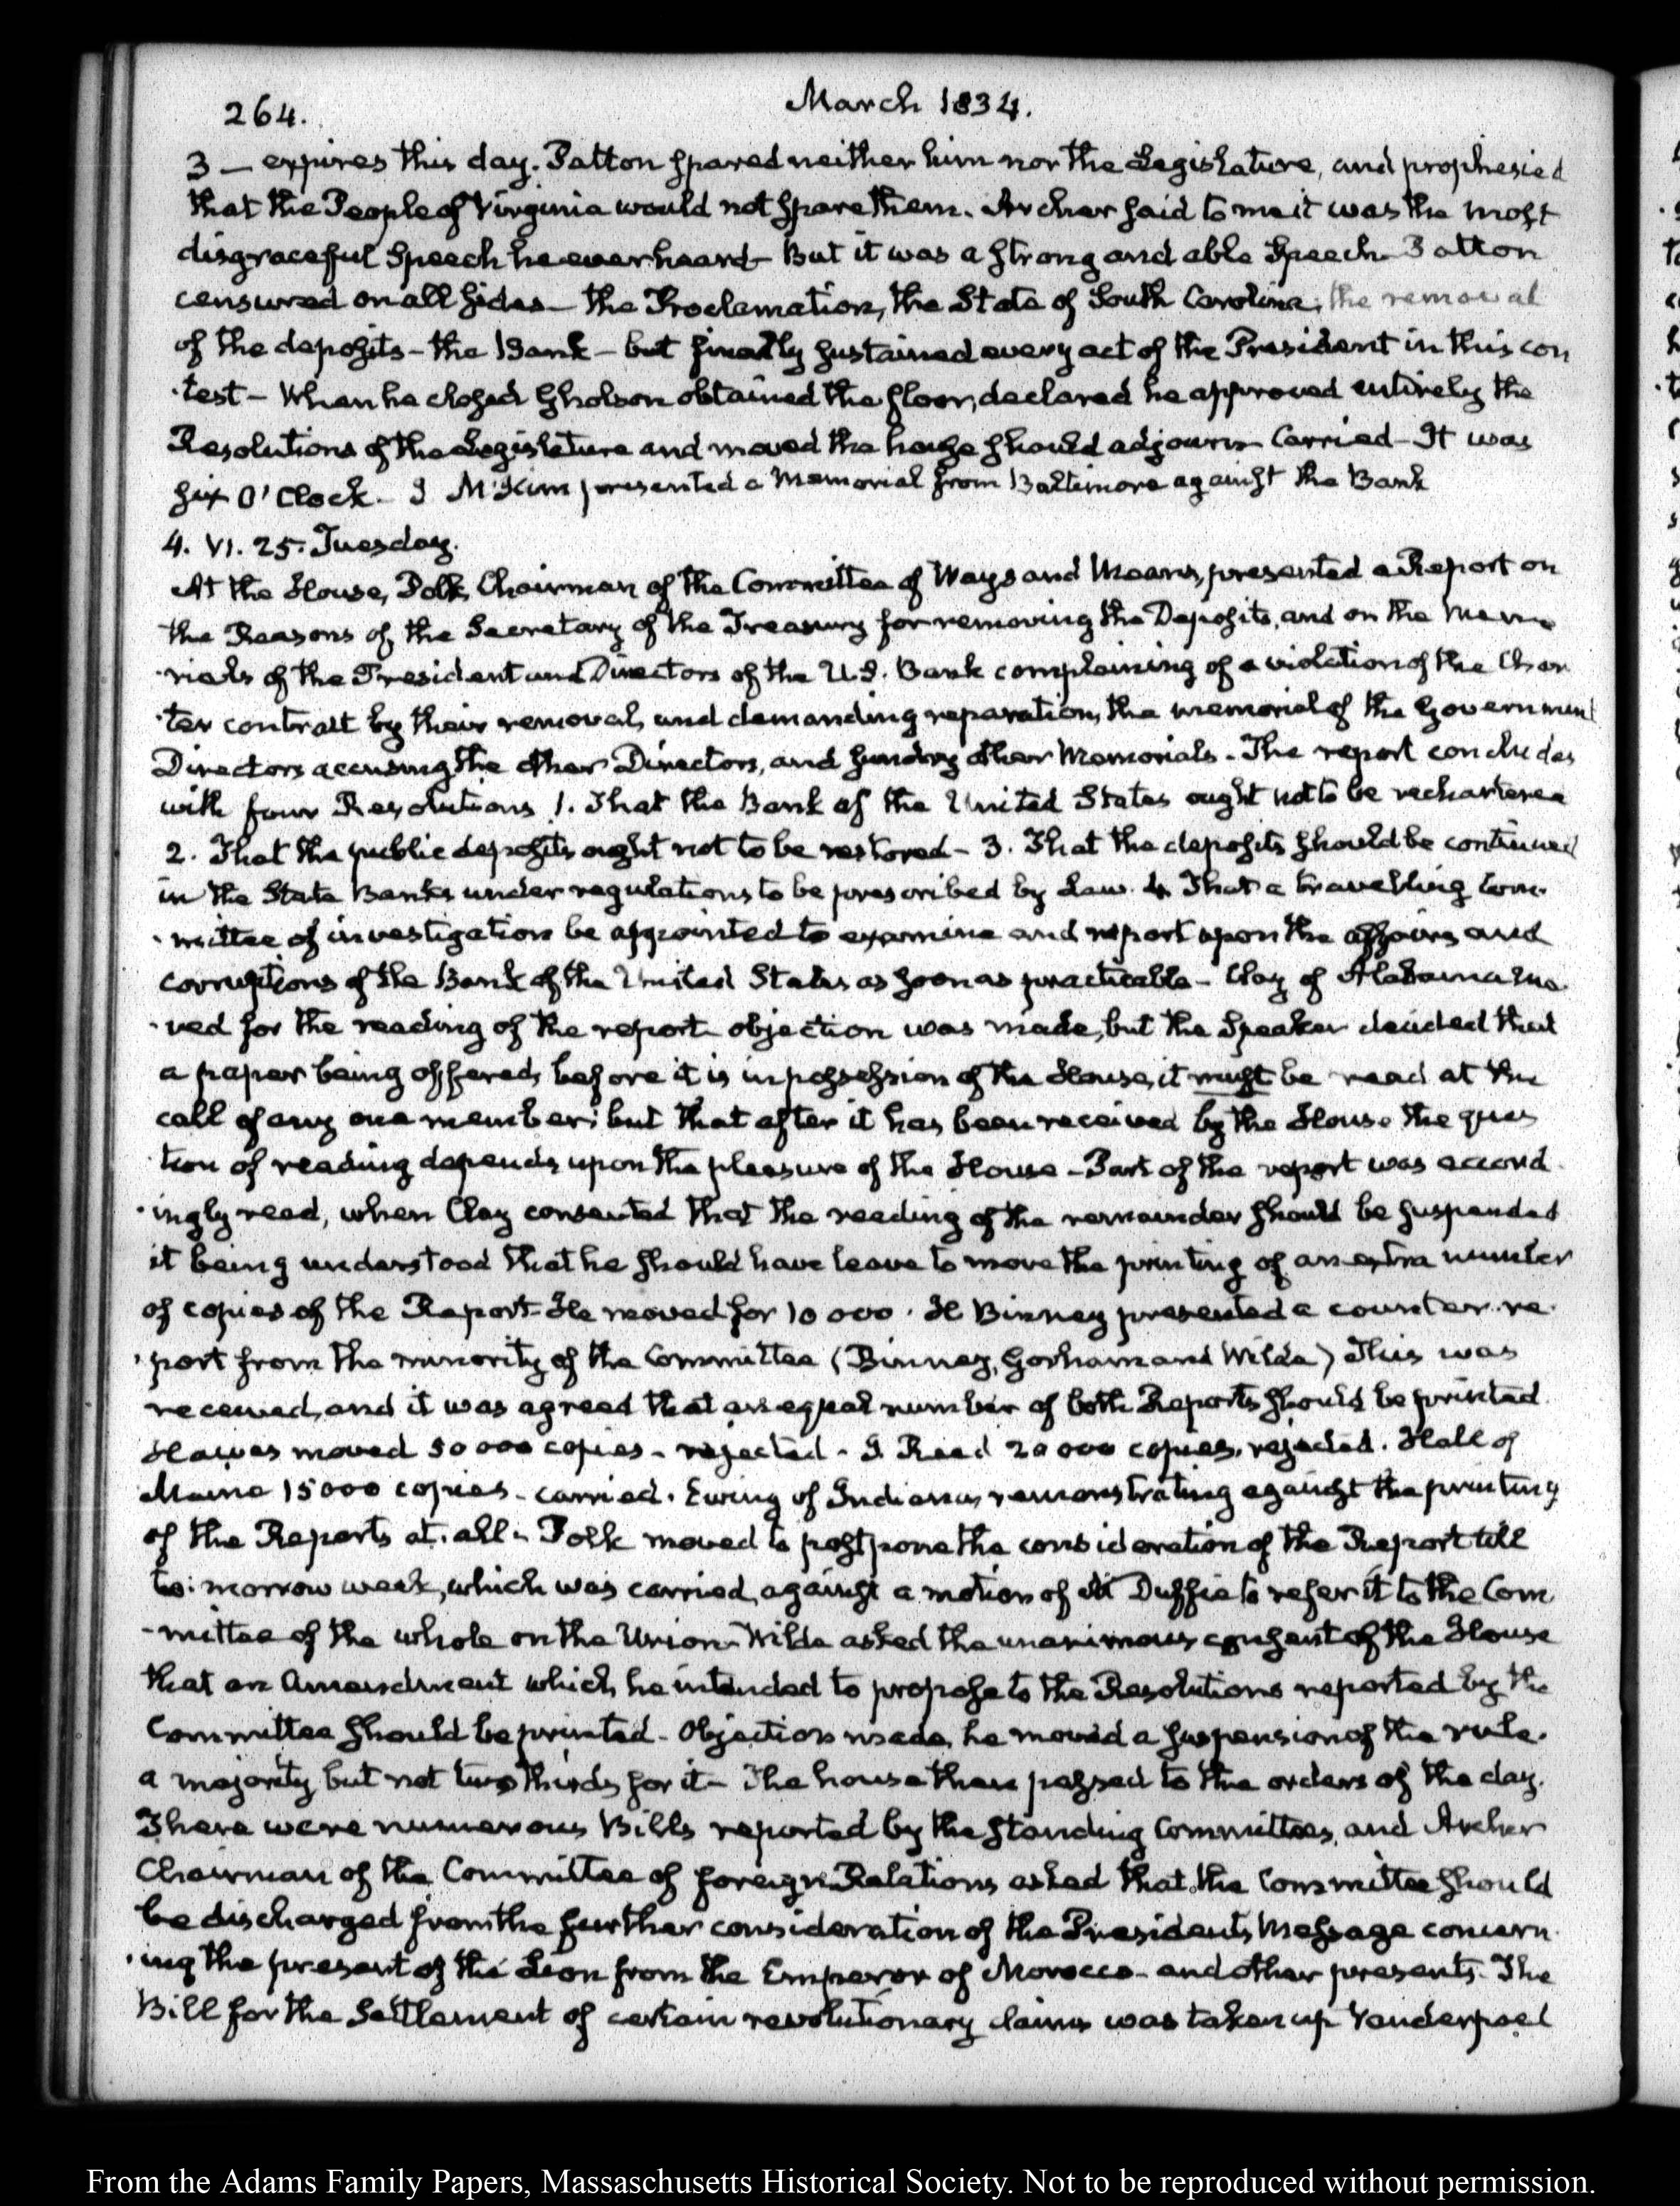 264.
March 1834.
3 — expires this day. Patton spared neither him nor the Legislature, and prophesied
that the People of Virginia would not spare them. Archer said to me it was the most
disgraceful Speech he ever heard — But it was a strong and able Speech — Patton
censured on all sides — the Proclamation, the State of South Carolina, the removal
of the deposits — the Bank — but finally sustained every act of the President in this con
·test — When he closed Gholson obtained the floor, declared he approved entirely the
Resolutions of the Legislature and moved the house should adjourn — Carried — It was
six O'Clock — I M'Kim presented a Memorial from Baltimore against the Bank
4. VI. 25. Tuesday.
At the House, Polk, Chairman of the Committee of Ways and Means, presented a Report on
the Reasons of the Secretary of the Treasury for removing the Deposits, and on the Memo
·rials of the President and Directors of the U.S. Bank complaining of a violation of the Char
·ter contract by their removal, and demanding reparation, the memorial of the Government
Directors accusing the other Directors, and sundry other Memorials — The report concludes
with four Resolutions 1. That the Bank of the United States ought not to be rechartered
2. That the public deposits ought not to be restored — 3. That the deposits should be continued
in the State Banks under regulations to be prescribed by Law. 4. That a travelling Com
·mittee of investigation be appointed to examine and report upon the affairs and
corruptions of the Bank of the United States as soon as practicable — Clay of Alabama mo
·ved for the reading of the report — objection was made, but the Speaker decided that
a paper being offered, before it is in possession of the House, it must be read at the
call of any one member: but that after it has been received by the House the ques
·tion of reading depends upon the pleasure of the House — Part of the report was accord
·ingly read, when Clay consented that the reading of the remainder should be suspended
it being understood that he should have leave to move the printing of an extra number
of copies of the Report — He moved for 10 000. H Binney presented a counter-re
·port from the minority of the Committee (Binney, Gorham and Wilde) This was
received, and it was agreed that an equal number of both Reports should be printed
Hawes moved 50 000 copies — rejected — J Reed 20 000 copies, rejected. Hall of
Maine 15 000 copies — carried. Ewing of Indiana, remonstrating against the printing
of the Reports at all — Polk moved to postpone the consideration of the Report till
to: morrow week, which was carried, against a motion of M Duffie to refer it to the Com
-mittee of the whole on the Union — Wilde asked the unanimous consent of the House
that an Amendment which he intended to propose to the Resolutions reported by the
Committee should be printed — Objection made, he moved a suspension of the rule.
a majority but not two thirds for it — The house then passed to the orders of the day.
There were numerous Bills reported by the standing Committees, and Archer
Chairman of the Committee of foreign Relations asked that the Committee should
be discharged from the further consideration of the Presidents Message concern
·ing the present of the Lion from the Emperor of Morocco — and other presents. The
Bill for the Settlement of certain revolutionary claims was taken up Vanderpoel
From the Adams Family Papers, Massachusetts Historical Society. Not to be reproduced without permission.